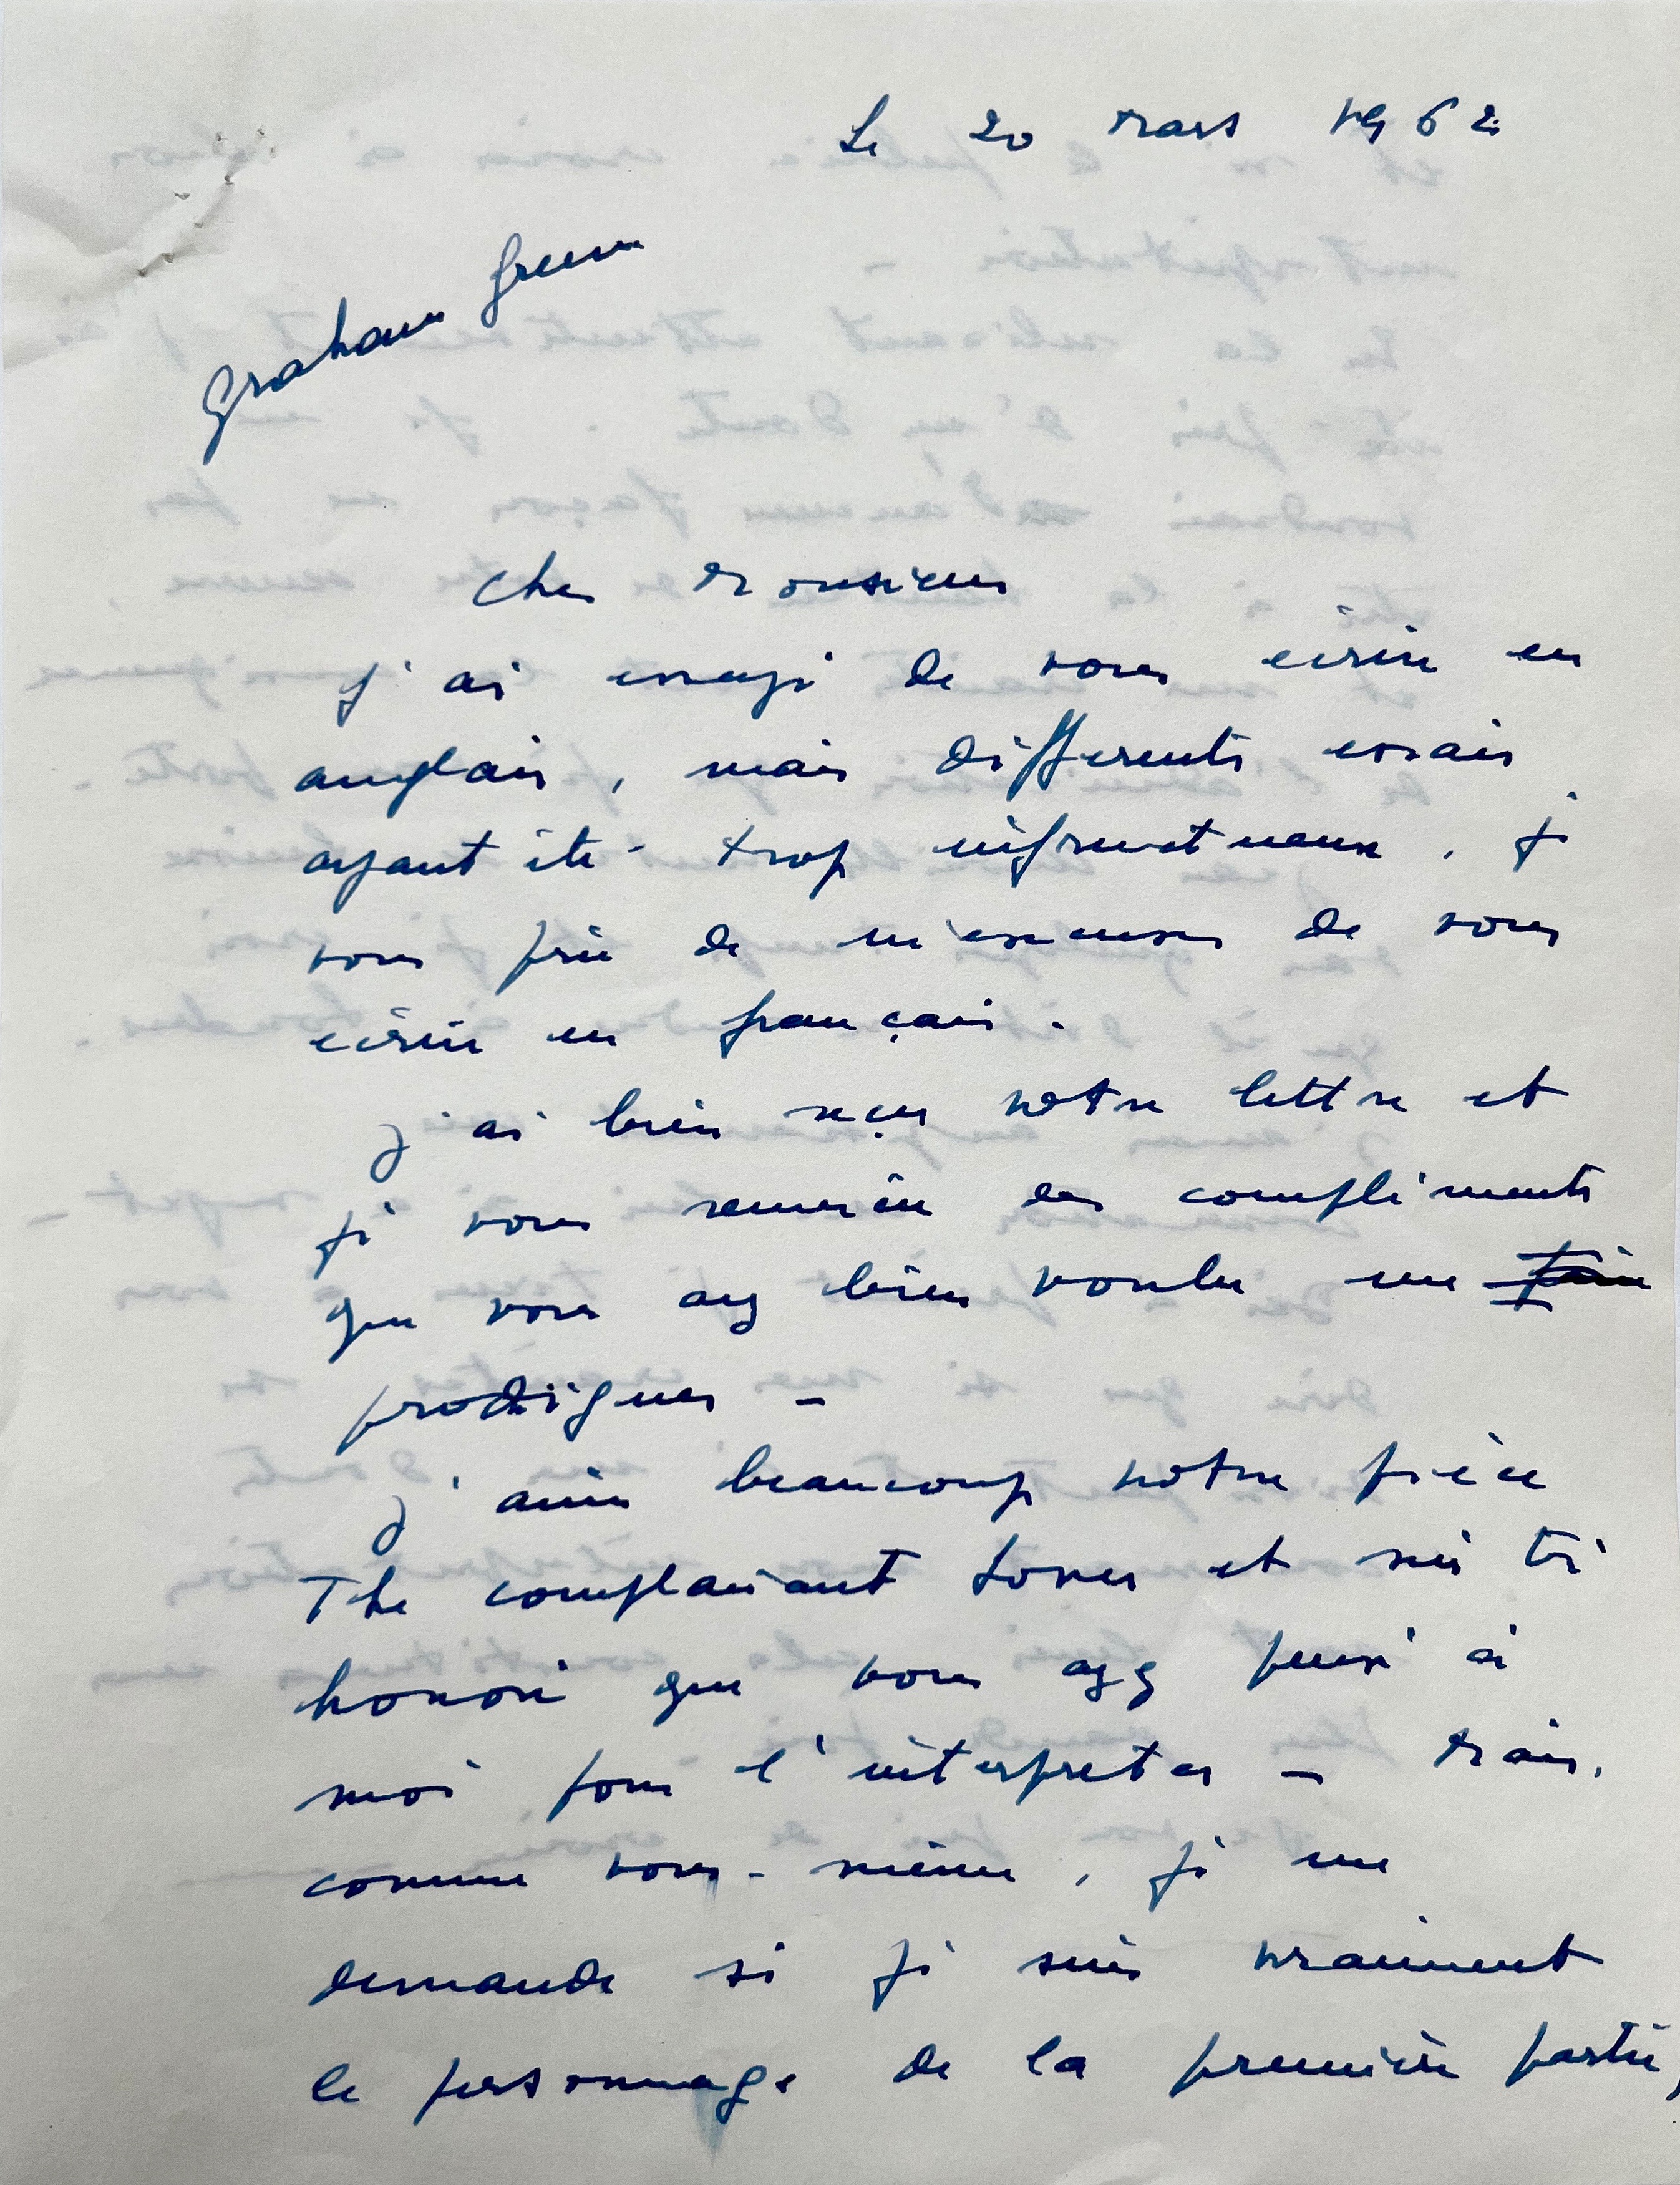 Le 20 Mars 1962
Graham Green
Cher Monsieur
J'ai essayé de vous écrire en
anglais, mais différents essais
ayant été trop infructueux, je
vous prie de m'excuser de vous
écrire en français.
J'ai bien reçu votre lettre et
je vous remercie des compliments
que vous avez bien voulu me faire
prodiguer -
J'aime beaucoup votre pièce
The complaisant Lover et suis très
honoré que vous ayez pensé à
moi pour l'interpréter - Mais,
comme vous-même, je me
demande si je suis vraiment
le personnage de la première partie,